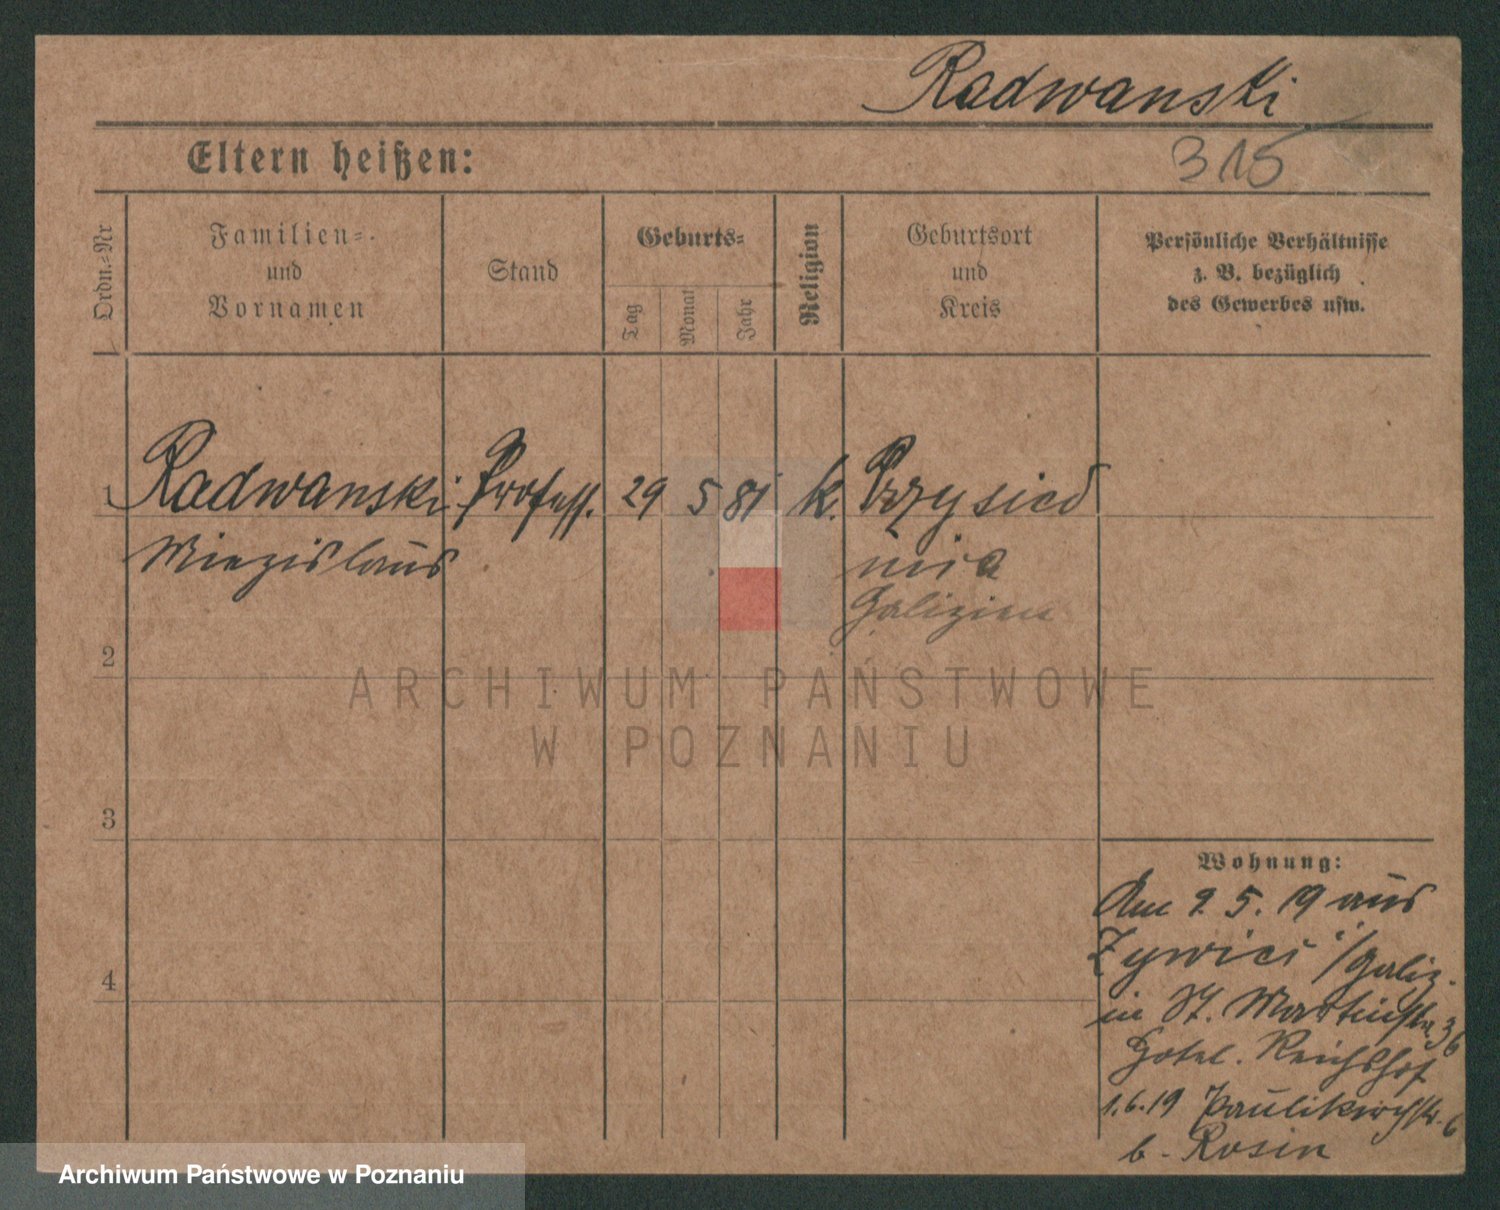 Radwanski
Eltern heißen:
315
Ordn.=Nr
Familien=
und
Vornamen
Stand
Geburts=
Tag
Monat
Jahr
Religion
Geburtsort
und
Kreis
Persönliche Verhältnisse
z. B. bezüglich
des Gewerbes usw.
1 Radwanski Profess. 29 5 81 k. Przysied
Miezislaus
nica
Galizien
2
3
4
Wohnung:
Am 9. 5. 19 aus
Zywiec /Galiz.
in St. Martinstr. 36
Hotel. Reichshof
1.6.19 Paulikirchstr. 6
b. Rosin
ARCHIWUM PAŃSTWOWE
W POZNANIU
Archiwum Państwowe w Poznaniu